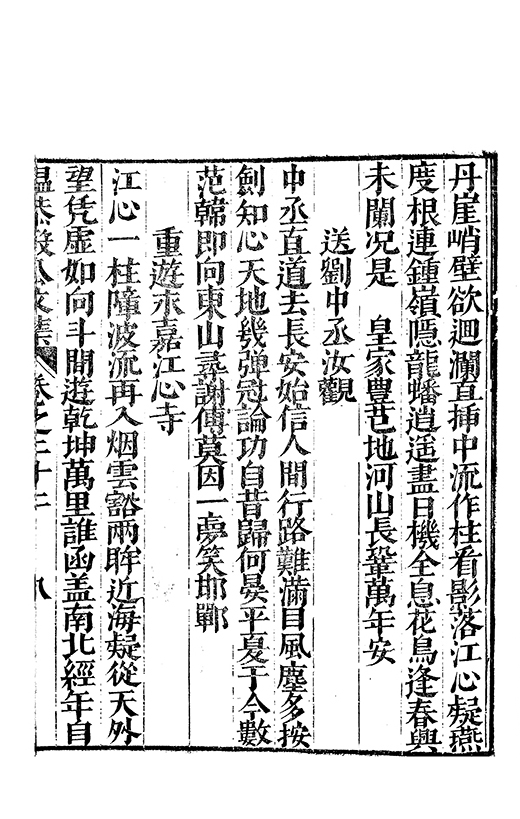 丹崖峭壁欲迴瀾直揷中流作柱看影落江心疑燕
度根連鍾嶺隱龍蟠逍遥盡日機全息花鳥逢春興
未闌况是　皇家豐芑地河山長鞏萬年安
送劉中丞汝觀
中丞直道去長安始信人間行路難滿目風塵多按
劍知心天地幾彈冠論功自昔歸何晏平夏于今數
范韓即向東山尋謝傅莫因一夢笑邯鄲
重遊永嘉江心寺
江心一柱障波流再入烟雲豁兩眸近海疑從天外
望凭虛如向斗間遊乾坤萬里誰函盖南北經年自
温恭毅公文集　卷之三十二　九